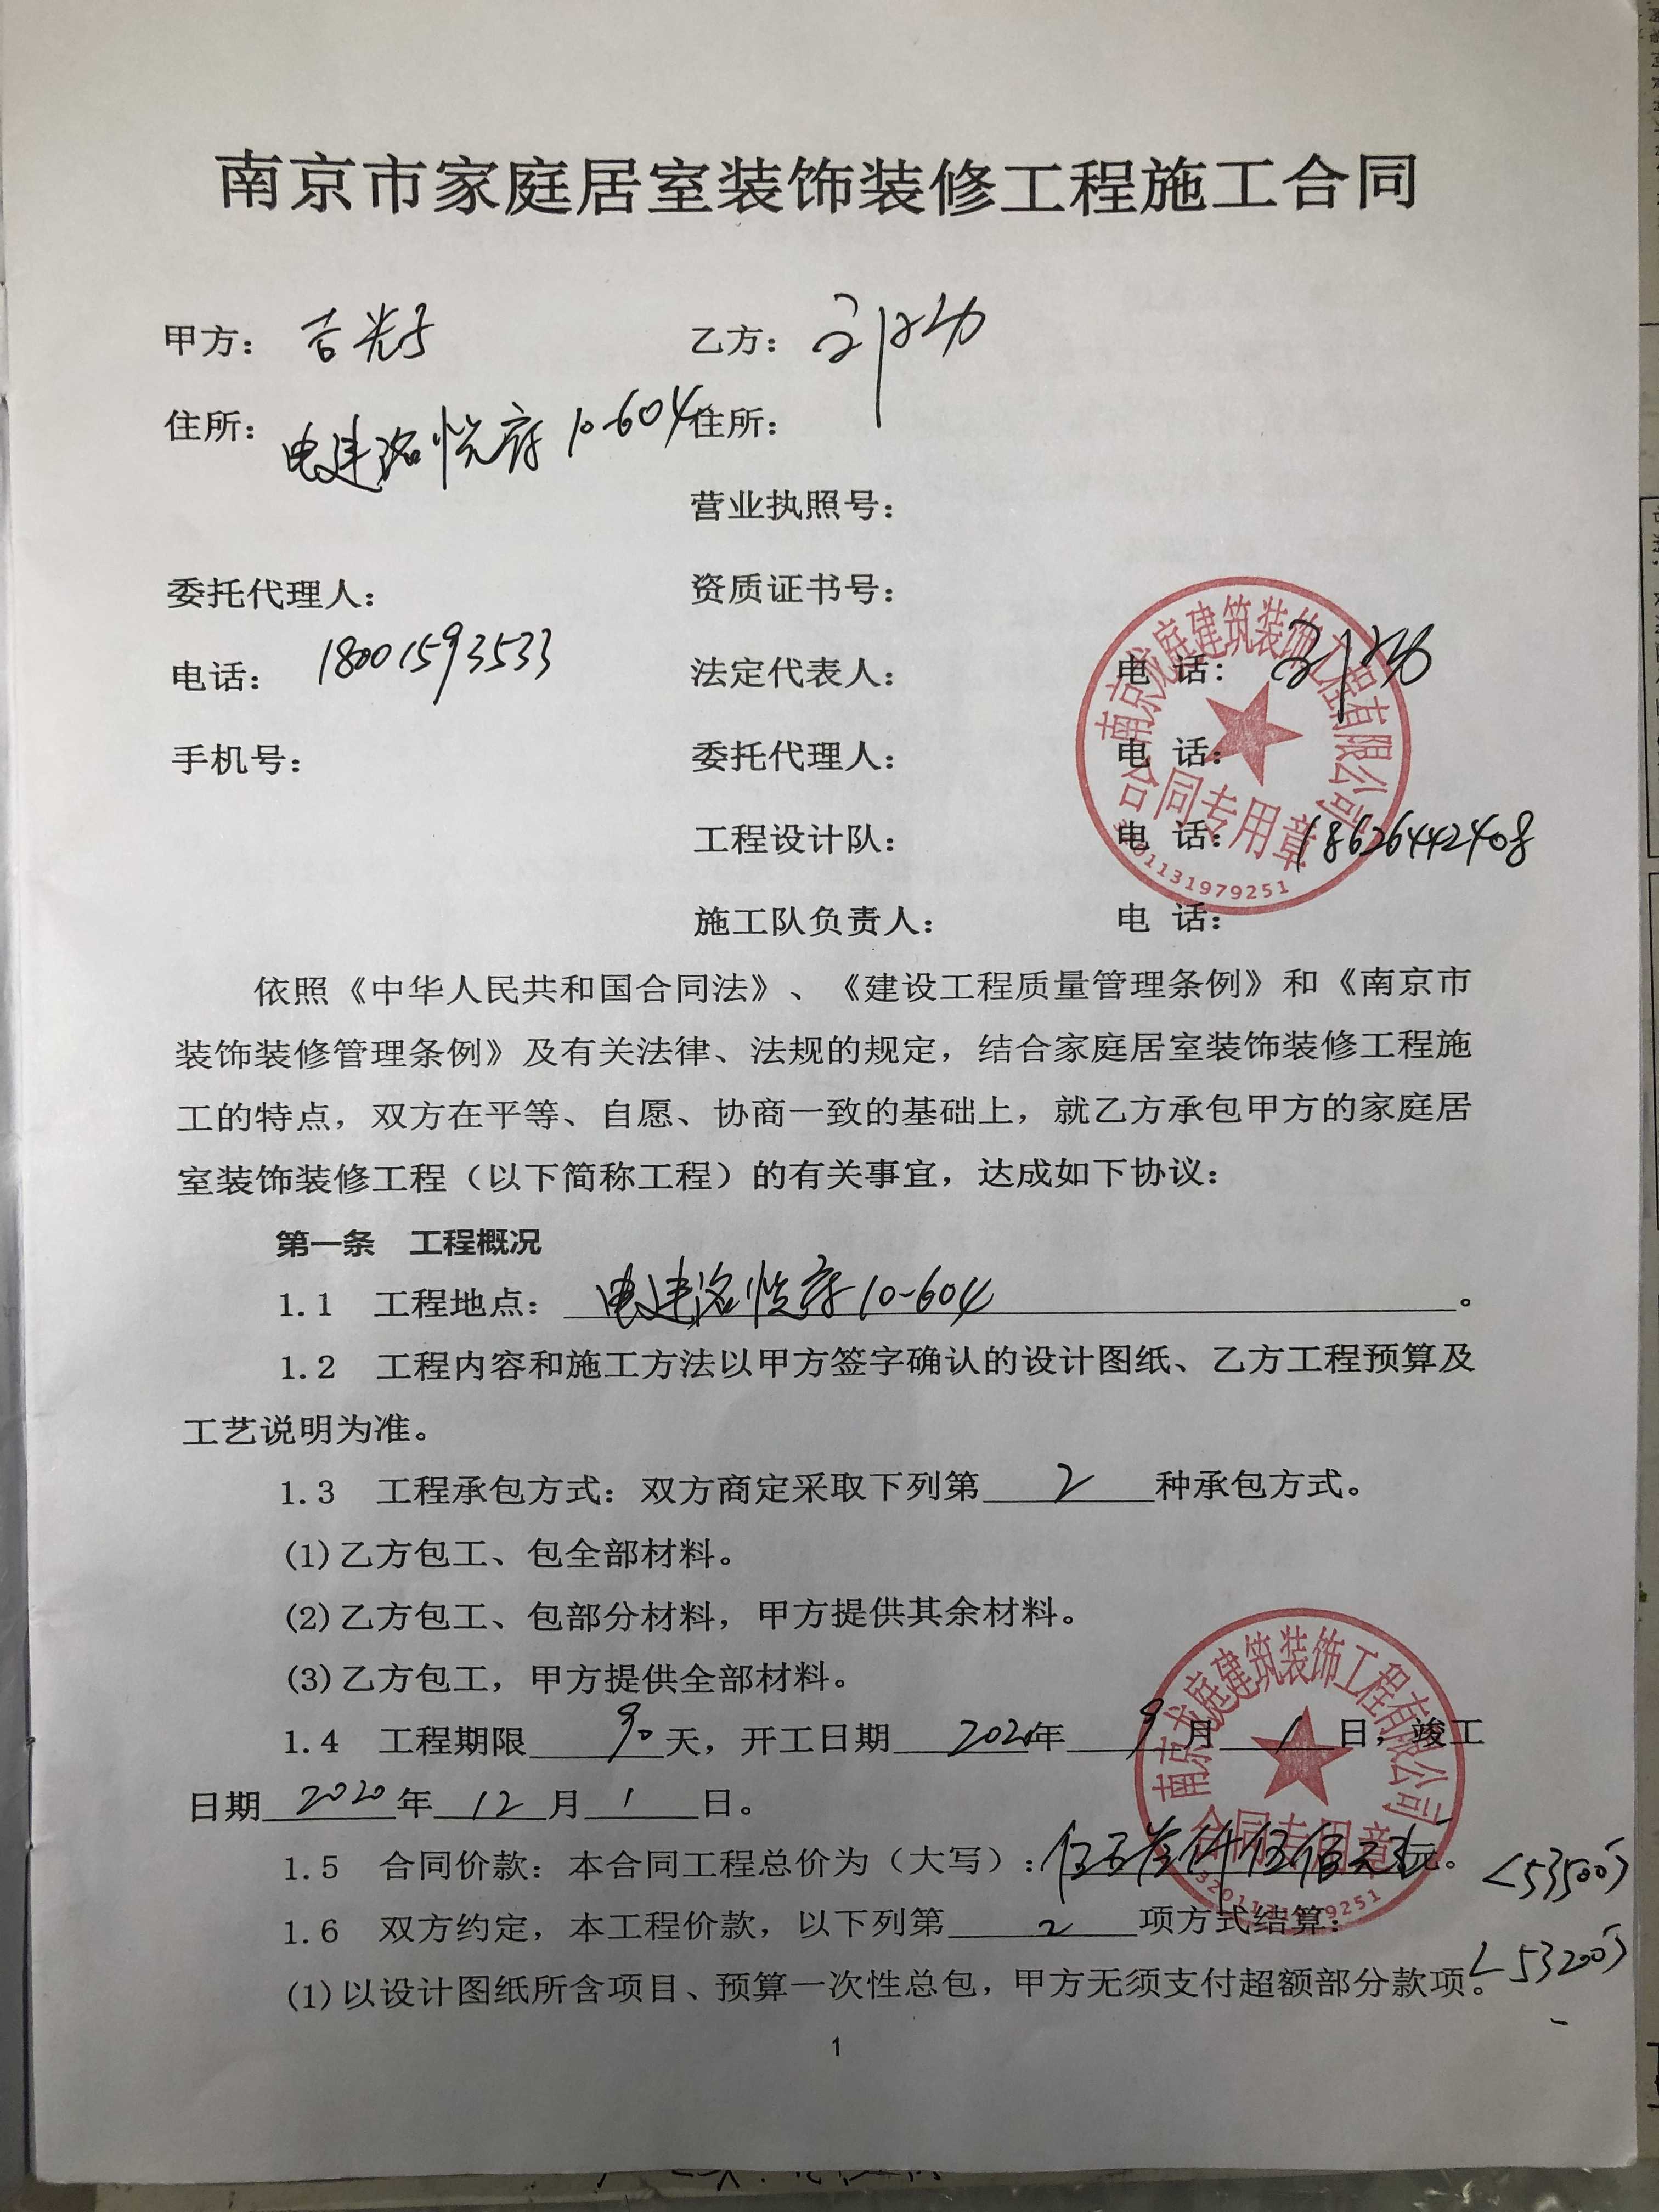 南京市家庭居室装饰装修工程施工合同
甲方：吉光子 乙方：
住所：电建洺悦府10-604 住所：
营业执照号：
委托代理人： 资质证书号：
电话：18001593533 法定代表人： 电 话：
手机号： 委托代理人： 电 话：
工程设计队： 电 话：18626442408
施工队负责人： 电 话：
南京龙庭建筑装饰工程有限公司
合同专用章
3201131979251
依照《中华人民共和国合同法》、《建设工程质量管理条例》和《南京市
装饰装修管理条例》及有关法律、法规的规定，结合家庭居室装饰装修工程施
工的特点，双方在平等、自愿、协商一致的基础上，就乙方承包甲方的家庭居
室装饰装修工程（以下简称工程）的有关事宜，达成如下协议：
第一条 工程概况
1.1 工程地点：电建洺悦府10-604。
1.2 工程内容和施工方法以甲方签字确认的设计图纸、乙方工程预算及
工艺说明为准。
1.3 工程承包方式：双方商定采取下列第2种承包方式。
(1)乙方包工、包全部材料。
(2)乙方包工、包部分材料，甲方提供其余材料。
(3)乙方包工，甲方提供全部材料。
1.4 工程期限90天，开工日期2020年9月1日，竣工
日期2020年12月1日。
1.5 合同价款：本合同工程总价为（大写）：伍万叁仟伍佰元整元。<53500>
1.6 双方约定，本工程价款，以下列第2项方式结算：
(1)以设计图纸所含项目、预算一次性总包，甲方无须支付超额部分款项。<53200>
南京龙庭建筑装饰工程有限公司
合同专用章
3201131979251
1